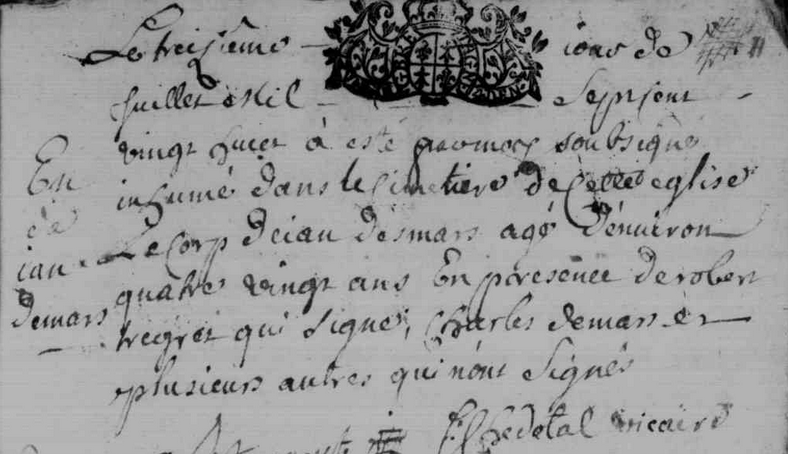 Le treisieme jour de
Juillet Mil Sept sent
vingt huict à esté par moy soubsigné
inhumé dans le Cimetiere de Cette eglise
Le Corp de ian desmars agé d'énuiron
quatre vingt ans En presence de robert
tregret qui signe, Charles demars et
plusieurs autres qui n'ont Signés
En
de
ian
demars
vicaire